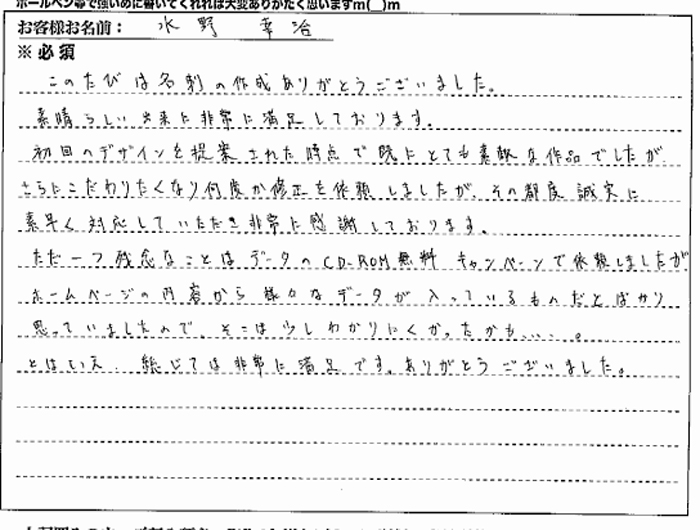 ボールペン等で強いめに書いてくれれば大変ありがたく思いますm(__)m
お客様お名前： 水野 幸治
※必須
このたびは名刺の作成ありがとうございました。
素晴らしい出来に非常に満足しております。
初回のデザインを提案された時点で既にとても素敵な作品でしたが
さらにこだわりたくなり何度か修正を依頼しましたが、その都度誠実に
素早く対応していただき非常に感謝しております。
ただ一つ残念なことはデータのCD-ROM無料キャンペーンで依頼しましたが
ホームページの内容から様々なデータが入っているものだとばかり
思っていましたので、そこは少しわかりにくかったかも……。
とはいえ、総じては非常に満足です。ありがとうございました。